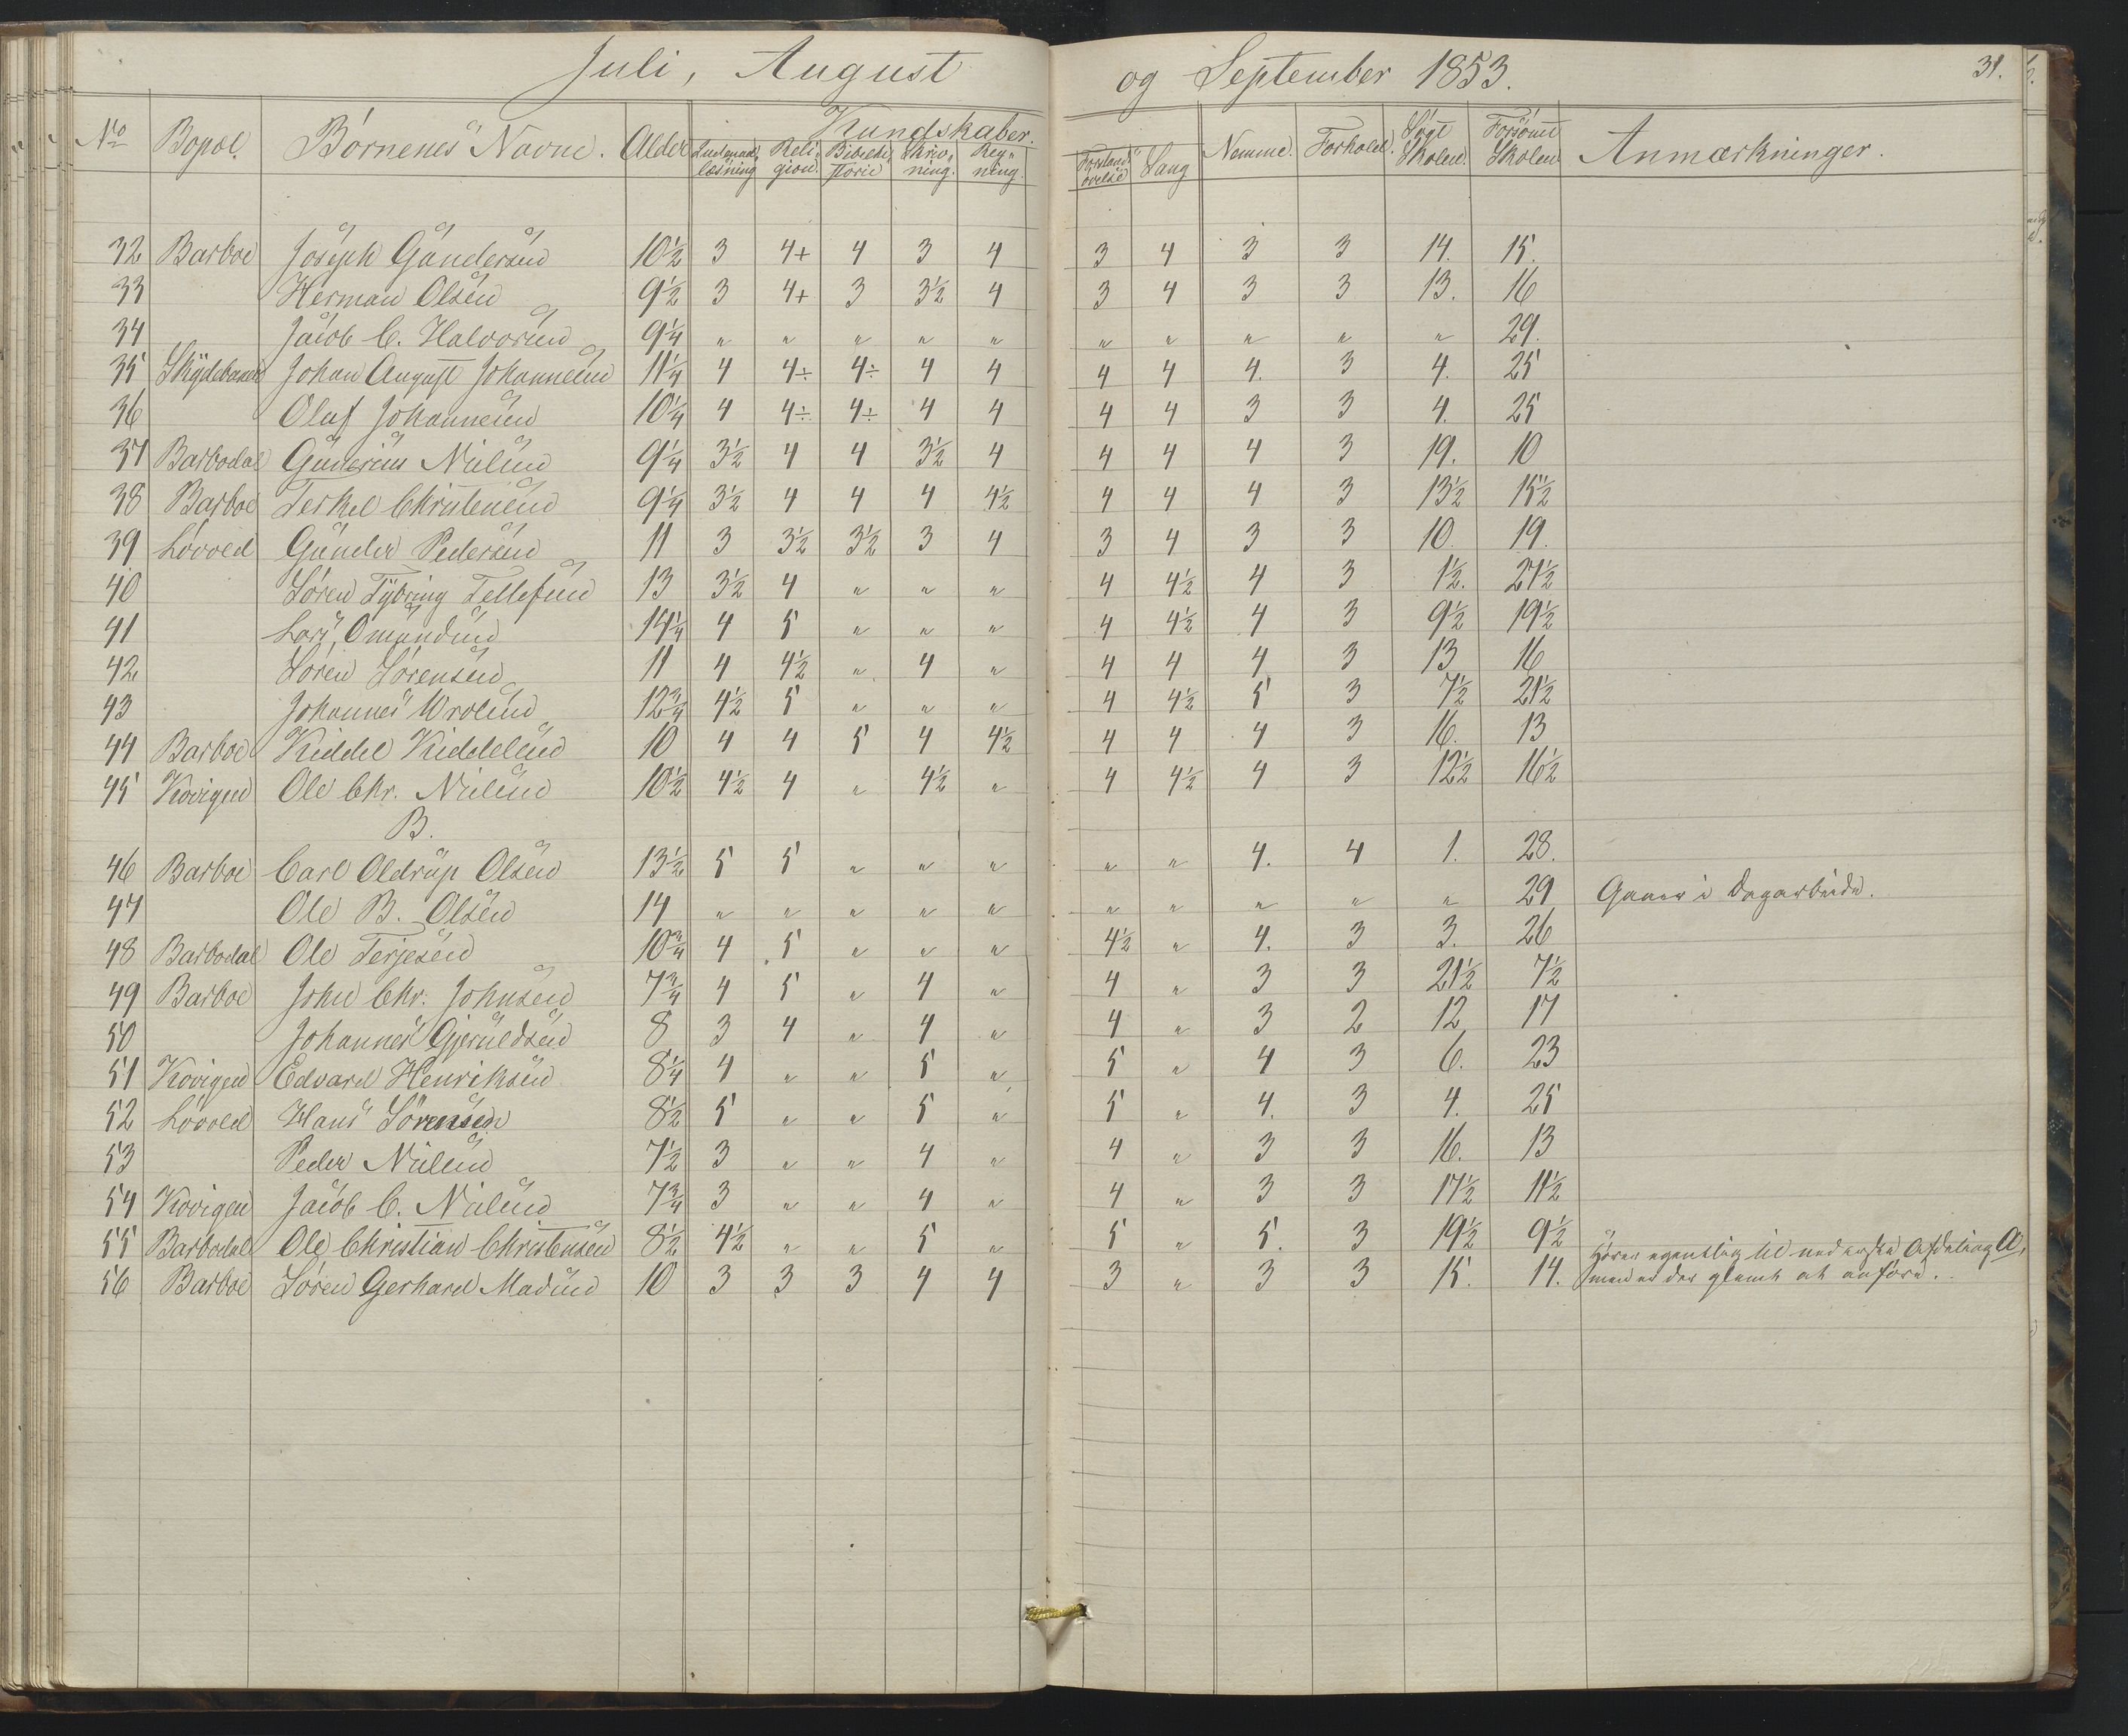 Juli, August og September 1853. 31.
No Bopæl. Børnenes Navne. Alder Kundskaber. Nemme. Forhold. Søgt Skolen. Forsømt Skolen Anmærkninger.
Indenad læsning Reli,, gion. Bibelhi,, storie Skriv,, ning. Reg,, ning. Forstands,, øvelse Sang
32 Barboe Joseph Gundersen 10½ 3 4+ 4 3 4 3 4 3 3 14. 15.
33 Herman Olsen 9½ 3 4+ 3 3½ 4 3 4 3 3 13. 16
34 Jacob C. Halvorsen 9¼ " " " " " " " " " " 29.
35 Skydebanen Johan August Johannesen 11¼ 4 4÷ 4÷ 4 4 4 4 4. 3 4. 25
36 Oluf Johannesen 10¼ 4 4÷ 4÷ 4 4 4 4 3 3 4. 25
37 Barbodal Gunerius Nielsen 9¼ 3½ 4 4 3½ 4 4 4 4 3 19. 10
38 Barboe Terkel Christensen 9¼ 3½ 4 4 4 4½ 4 4 4 3 13½ 15½
39 Løvold Gunder Pedersen 11 3 3½ 3½ 3 4 3 4 3 3 10. 19.
40 Søren Tybring Tellefsen 13 3½ 4 " " " 4 4½ 4 3 1½. 27½
41 Lars Omundsen 14¼ 4 5 " " " 4 4½ 4 3 9½ 19½
42 Søren Sørensen 11 4 4½ " 4 " 4 4 4 3 13 16
43 Johannes Wrolsen 12¾ 4½ 5 " " " 4 4½ 5 3 7½ 21½
44 Barboe Kiddel Kiddelsen 10 4 4 5 4 4½ 4 4 4 3 16. 13
45 Kovigen Ole Chr. Nielsen 10½ 4½ 4 " 4½ " 4 4½ 4 3 12½ 16½
B.
46 Barboe Carl Oldrup Olsen 13½ 5 5 " " " " " 4. 4 1. 28.
47 Ole B. Olsen 14 " " " " " " " " " " 29 Gaaer i Dagarbeide.
48 Barbodal Ole Terjesen 10¾ 4 5 " " " 4½ " 4. 3 3. 26
49 Barboe John Chr. Johnsen 7¾ 4 5 " 4 " 4 " 3 3 21½ 7½
50 Johannes Gjeruldsen 8 3 4 " 4 " 4 " 3 2 12 17
51 Kovigen Edvard Henriksen 8¼ 4 " " 5 " 5 " 4 3 6. 23
52 Løvold Hans Sørensen 8½ 5 " " 5 " 5 " 4. 3 4. 25
53 Peder Nielsen 7½ 3 " " 4 " 4 " 3 3 16. 13
54 Kovigen Jacob C. Nielsen 7¾ 3 " " 4 " 4 " 3 3 17½ 11½
55 Barbodal Ole Christian Christensen 8½ 4½ " " 5 " 5 " 5. 3 19½ 9½ Hører egentlig til nederste Afdeling A,
56 Barboe Søren Gerhard Madsen 10 3 3 3 4 4 3 " 3 3 15. 14. men er der glemt at anføre.